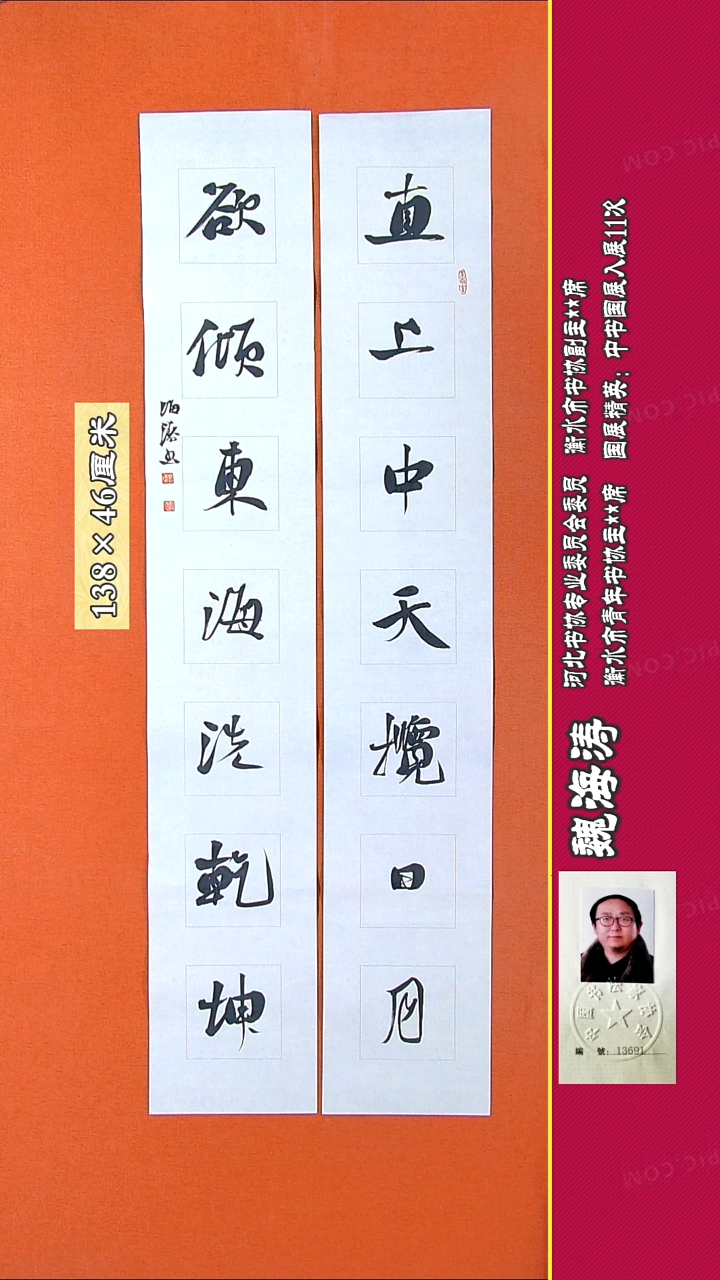 直上中天攬日月
欲傾東海洗乾坤
海濤书
138×46厘米
魏海涛
河北书协专业委员会委员 衡水市书协副主**席
衡水市青年书协主**席 国展精英：中书国展入展11次
編 號：13691
PIC.COM